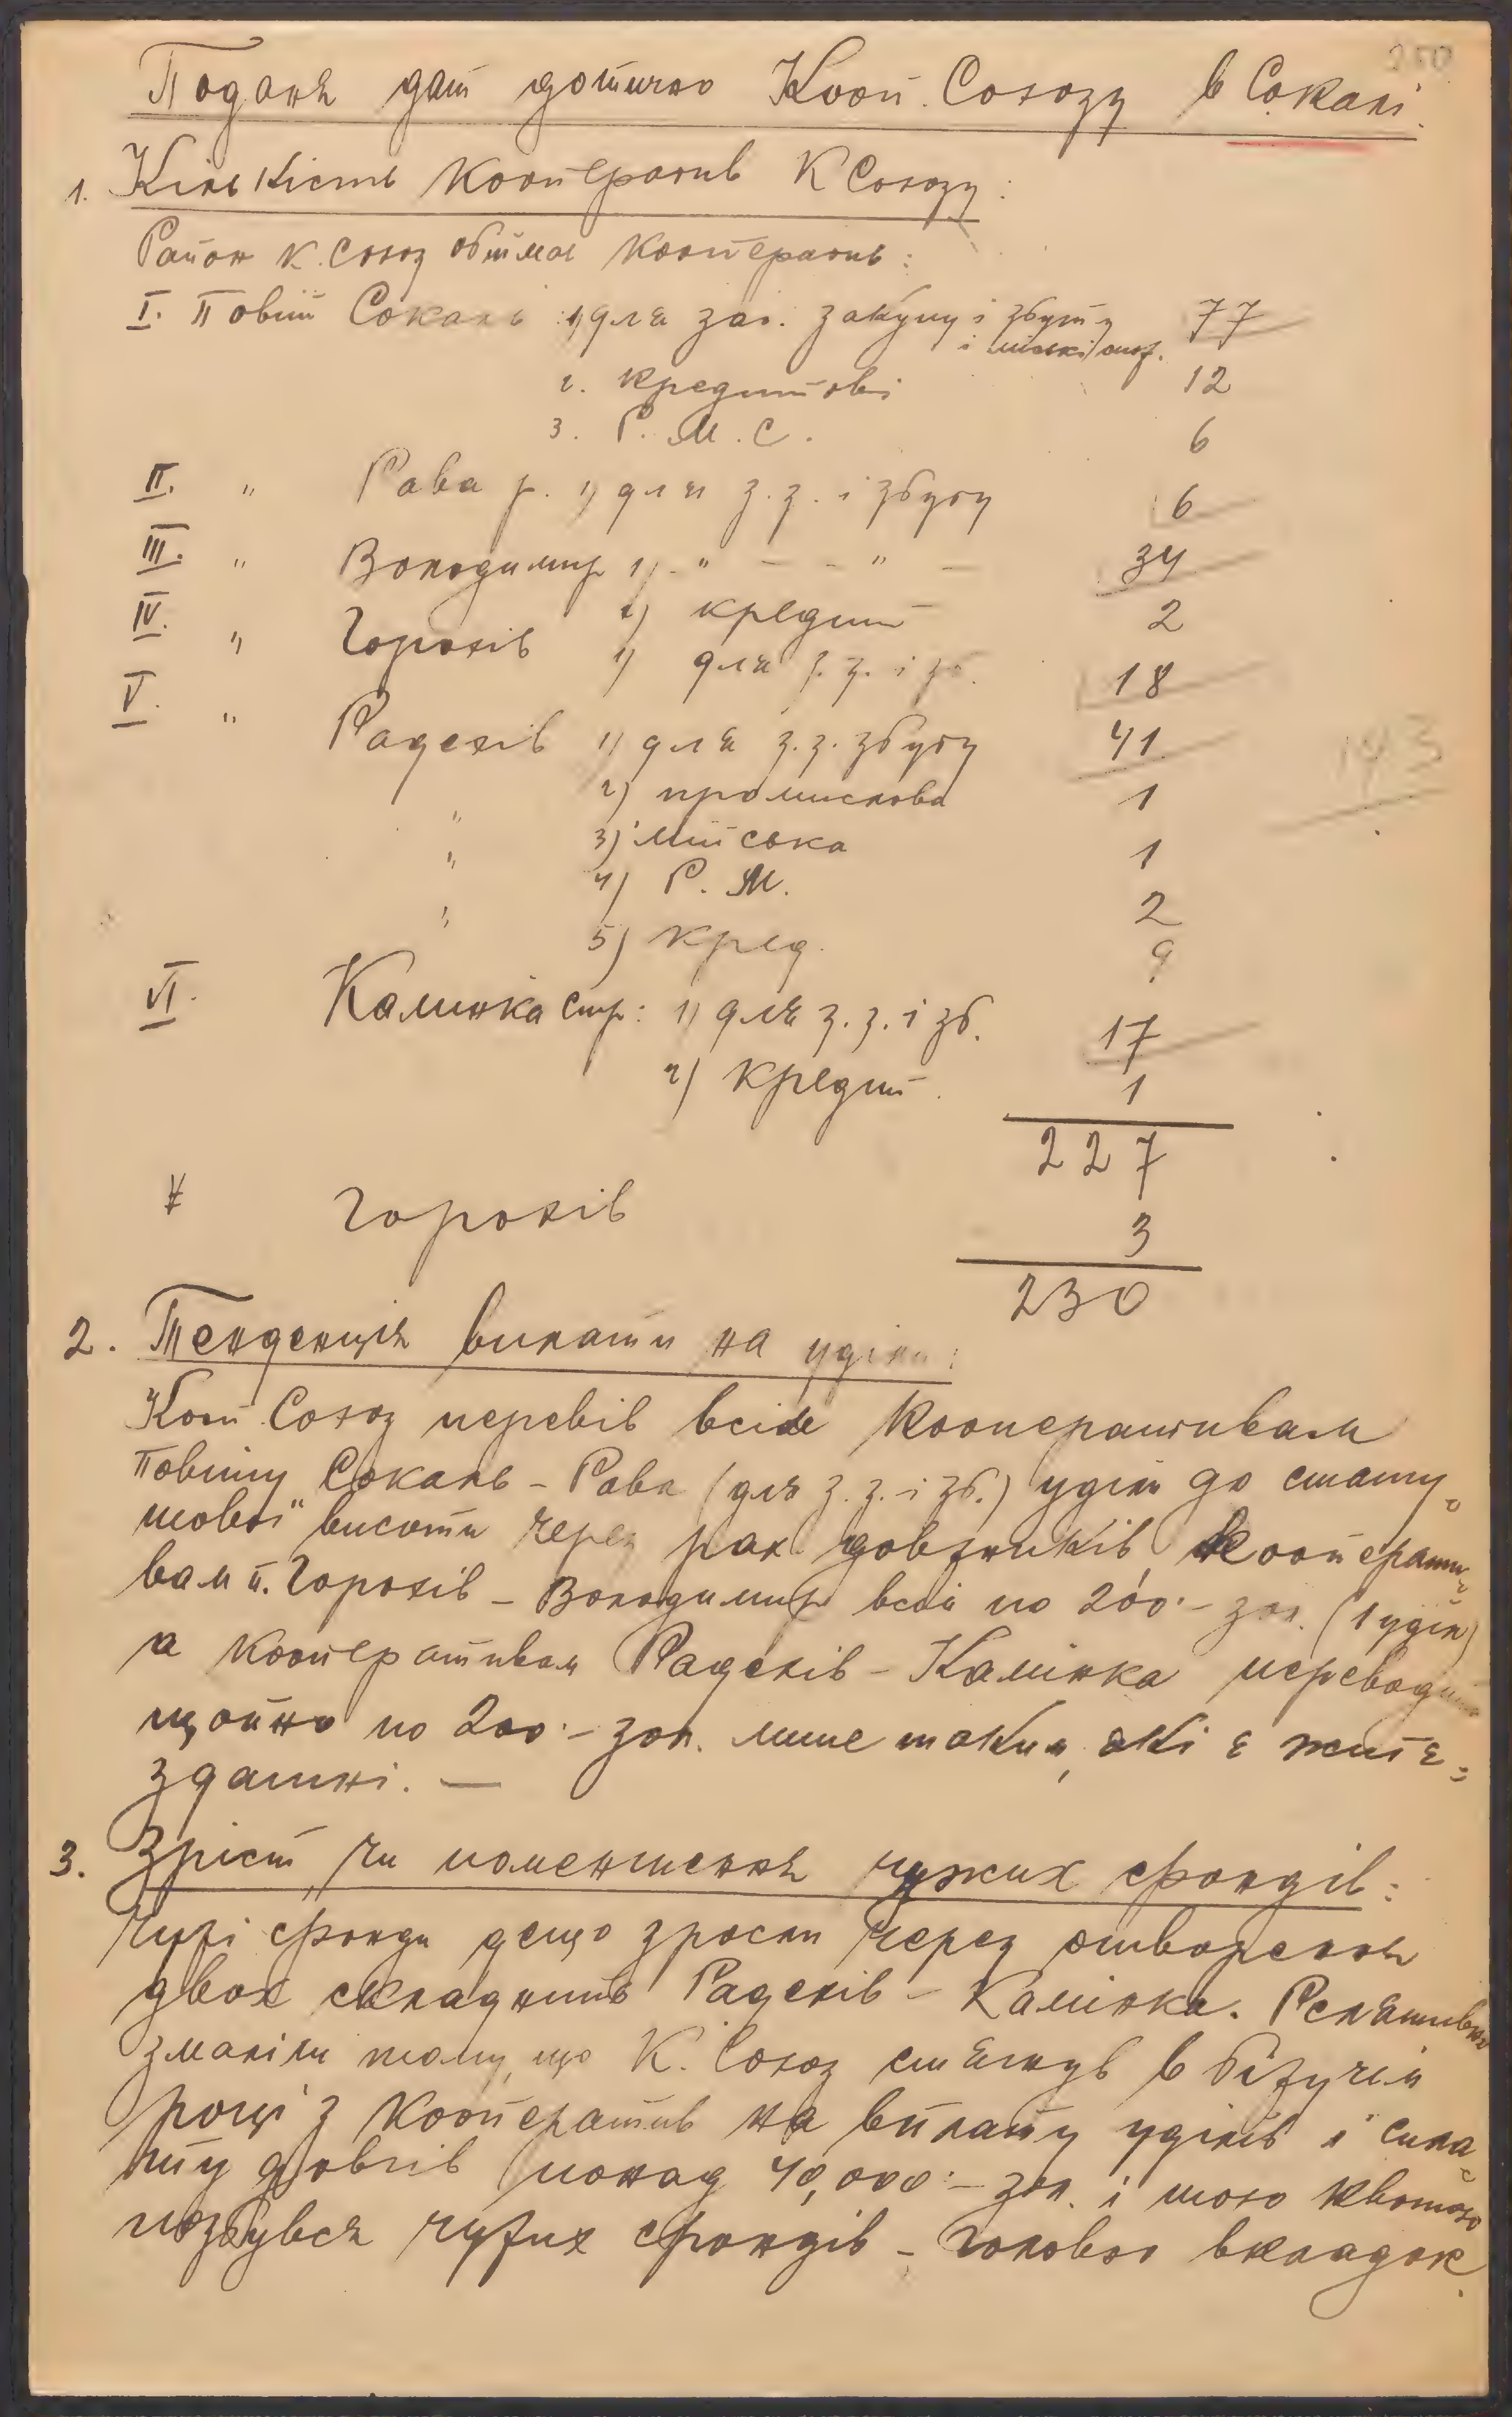 250
Поданя дат дотично Кооп. Союзу в Сокалі.
1. Кількість кооператив К Союзу:
Район К. Союз обіймає кооператив:
I. Повіт Сокаль 1) для заг. закупу і збуту 77
і міські/
2. кредитові 12
3. Р. М. С. 6
II. " Рава р. 1) для з. з. і збуту 6
III. " Володимир 1) - " - - " - 34
2) кредит 2
IV. " Горохів 1) для з. з. і зб. 18
V. " Радехів 1) для з. з. збуту 41
143
2) промислова 1
" 3) міська 1
" 4) Р. М. 2
" 5) кред. 9
VI. Камінка стр: 1) для з. з. і зб. 17
2) кредит. 1
227
Горохів 3
230
2. Тенденція виплати на уділи:
Кооп. Союз перевів всім кооперативам
повіту Сокаль - Рава (для з. з. і зб.) уділи до стату-
тової висоти через рах. довжників, кооперати-
вам п. Горохів - Володимир всім по 200·- зол. (1 уділ)
а кооперативам Радехів - Камінка переводить
щойно по 200·- зол. лише таким, які є житє-
здатні. —
3. Зріст, чи поменшення чужих фондів:
Чужі фонди дещо зросли через отворення
двох складниць Радехів - Камінка. Релятивно
змаліли тому, що К. Союз стягнув в біжучім
році з кооператив на виплату уділів і спла-
ту довгів понад 40,000·- зол. і тою квотою
позбувся чужих фондів - головно вкладок.